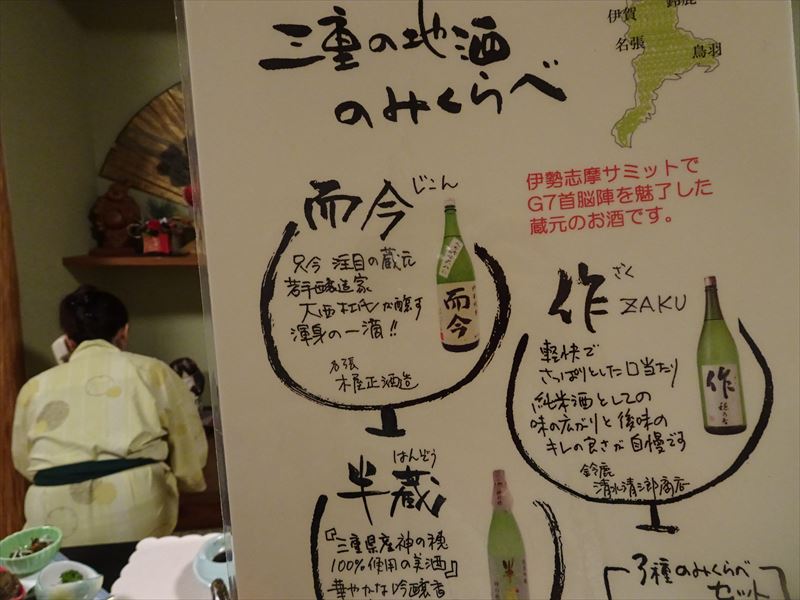 三重の地酒
のみくらべ
伊賀
鈴鹿
名張
鳥羽
伊勢志摩サミットで
G7首脳陣を魅了した
蔵元のお酒です。
じこん
而今
只今 注目の蔵元
若手醸造家
大西杜氏が醸す
渾身の一滴!!
名張
木屋正酒造
而今
ざく
作 ZAKU
軽快で
さっぱりとした口当たり
純米酒としての
味の広がりと後味の
キレの良さが自慢です
鈴鹿
清水清三郎商店
作
穂乃智
はんぞう
半蔵
『三重県産神の穂
100%使用の美酒』
華やかな吟醸香
半
3種のみくらべ
セット